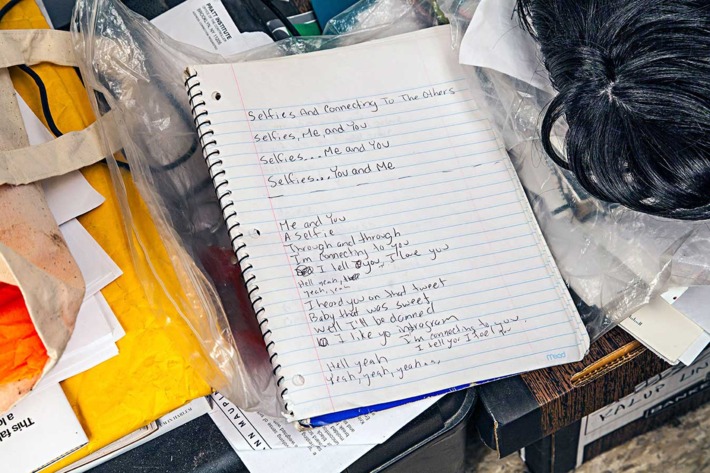 PRATT INSTITUTE
Selfies And Connecting To The Others
Selfies, Me and You
Selfies... Me and You
Selfies... You and Me
Me and You
A Selfie
Through and through
I'm connecting to you
I tell you, I love you
Hell yeah,
yeah, yeah
I heard you on that tweet
Baby that was sweet,
Well I'll be damned
I like yo intragram
I'm connecting to you,
I tell you I love you
Hell yeah
Yeah, yeah, yeah...
mead
This fab
a lo
NN MAUPI
VALUE LIN